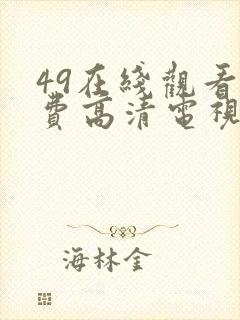 49在綫觀看
費高清電視
海林金